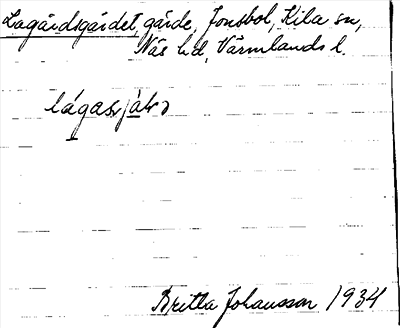 Lagårdsgärdet, gärde, Jonsbol, Kila sn,
Näs hd, Värmlands l.
Britta Johansson 1934